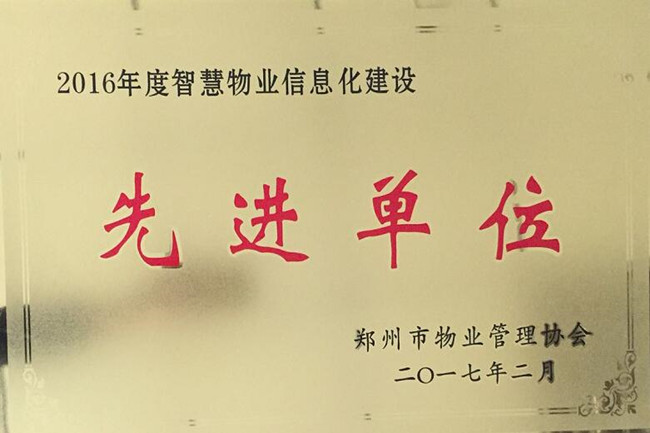 2016年度智慧物业信息化建设
先进单位
郑州市物业管理协会
二〇一七年二月